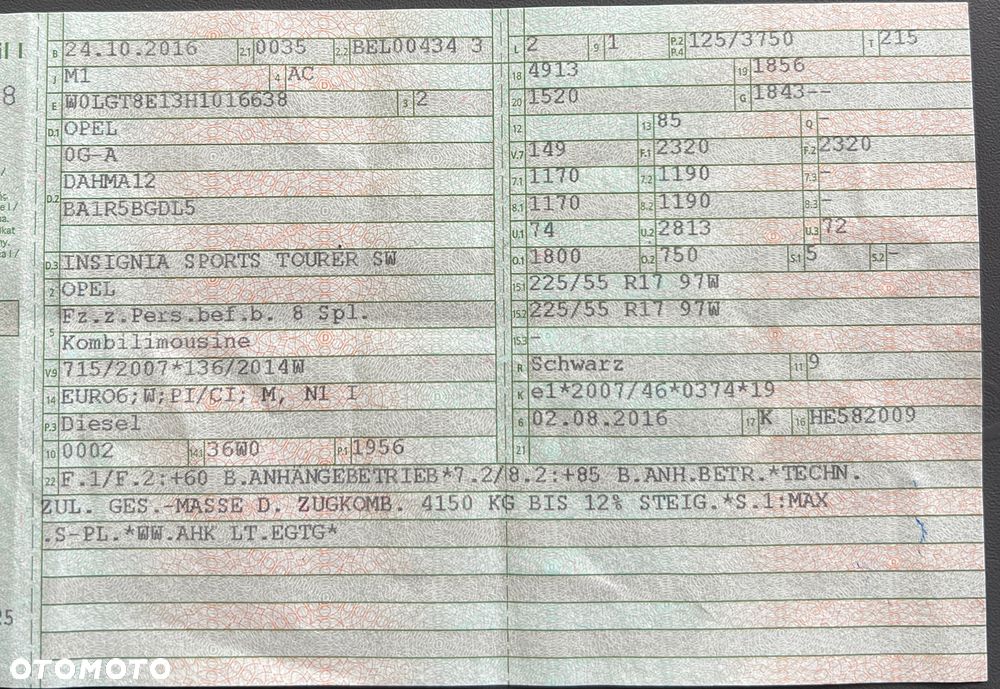 B 24.10.2016 2.1 0035 2.2 BEL00434 3
J M1 4 AC
E W0LGT8E13H1016638 3 2
D.1 OPEL
0G-A
DAHMA12
D.2 BA1R5BGDL5
D.3 INSIGNIA SPORTS TOURER SW
2 OPEL
Fz.z.Pers.bef.b. 8 Spl.
5 Kombilimousine
V.9 715/2007*136/2014W
14 EURO6;W;PI/CI; M, N1 I
P.3 Diesel
10 0002 14.1 36W0 P.1 1956
L 2 9 1 P.2 P.4 125/3750 T 215
18 4913 19 1856
20 1520 G 1843--
12 13 85 Q -
V.7 149 F.1 2320 F.2 2320
7.1 1170 7.2 1190 7.3 -
8.1 1170 8.2 1190 8.3 -
U.1 74 U.2 2813 U.3 72
O.1 1800 O.2 750 S.1 5 S.2 -
15.1 225/55 R17 97W
15.2 225/55 R17 97W
15.3 -
R Schwarz 11 9
K e1*2007/46*0374*19
6 02.08.2016 17 K 16 HE582009
21
22 F.1/F.2:+60 B.ANHÄNGEBETRIEB*7.2/8.2:+85 B.ANH.BETR.*TECHN.
ZUL. GES.-MASSE D. ZUGKOMB. 4150 KG BIS 12% STEIG.*S.1:MAX
.S-PL.*WW.AHK LT.EGTG*
OTOMOTO